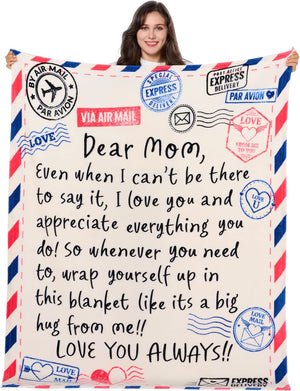 BY AIR MAIL
PAR AVION
EXPRESS
DELIVERY
EXPRESS
DELIVERY
PAR AVION
VIA AIR MAIL
LOVE
LOVE
FROM ME
TO YOU
Dear Mom,
Even when I can't be there
to say it, I love you and
appreciate everything you
do! So whenever you need
to, wrap yourself up in
this blanket like its a big
hug from me!!
LOVE YOU ALWAYS!!
LOVE
U
LOVE
MAIL
LOVE
EXPRESS